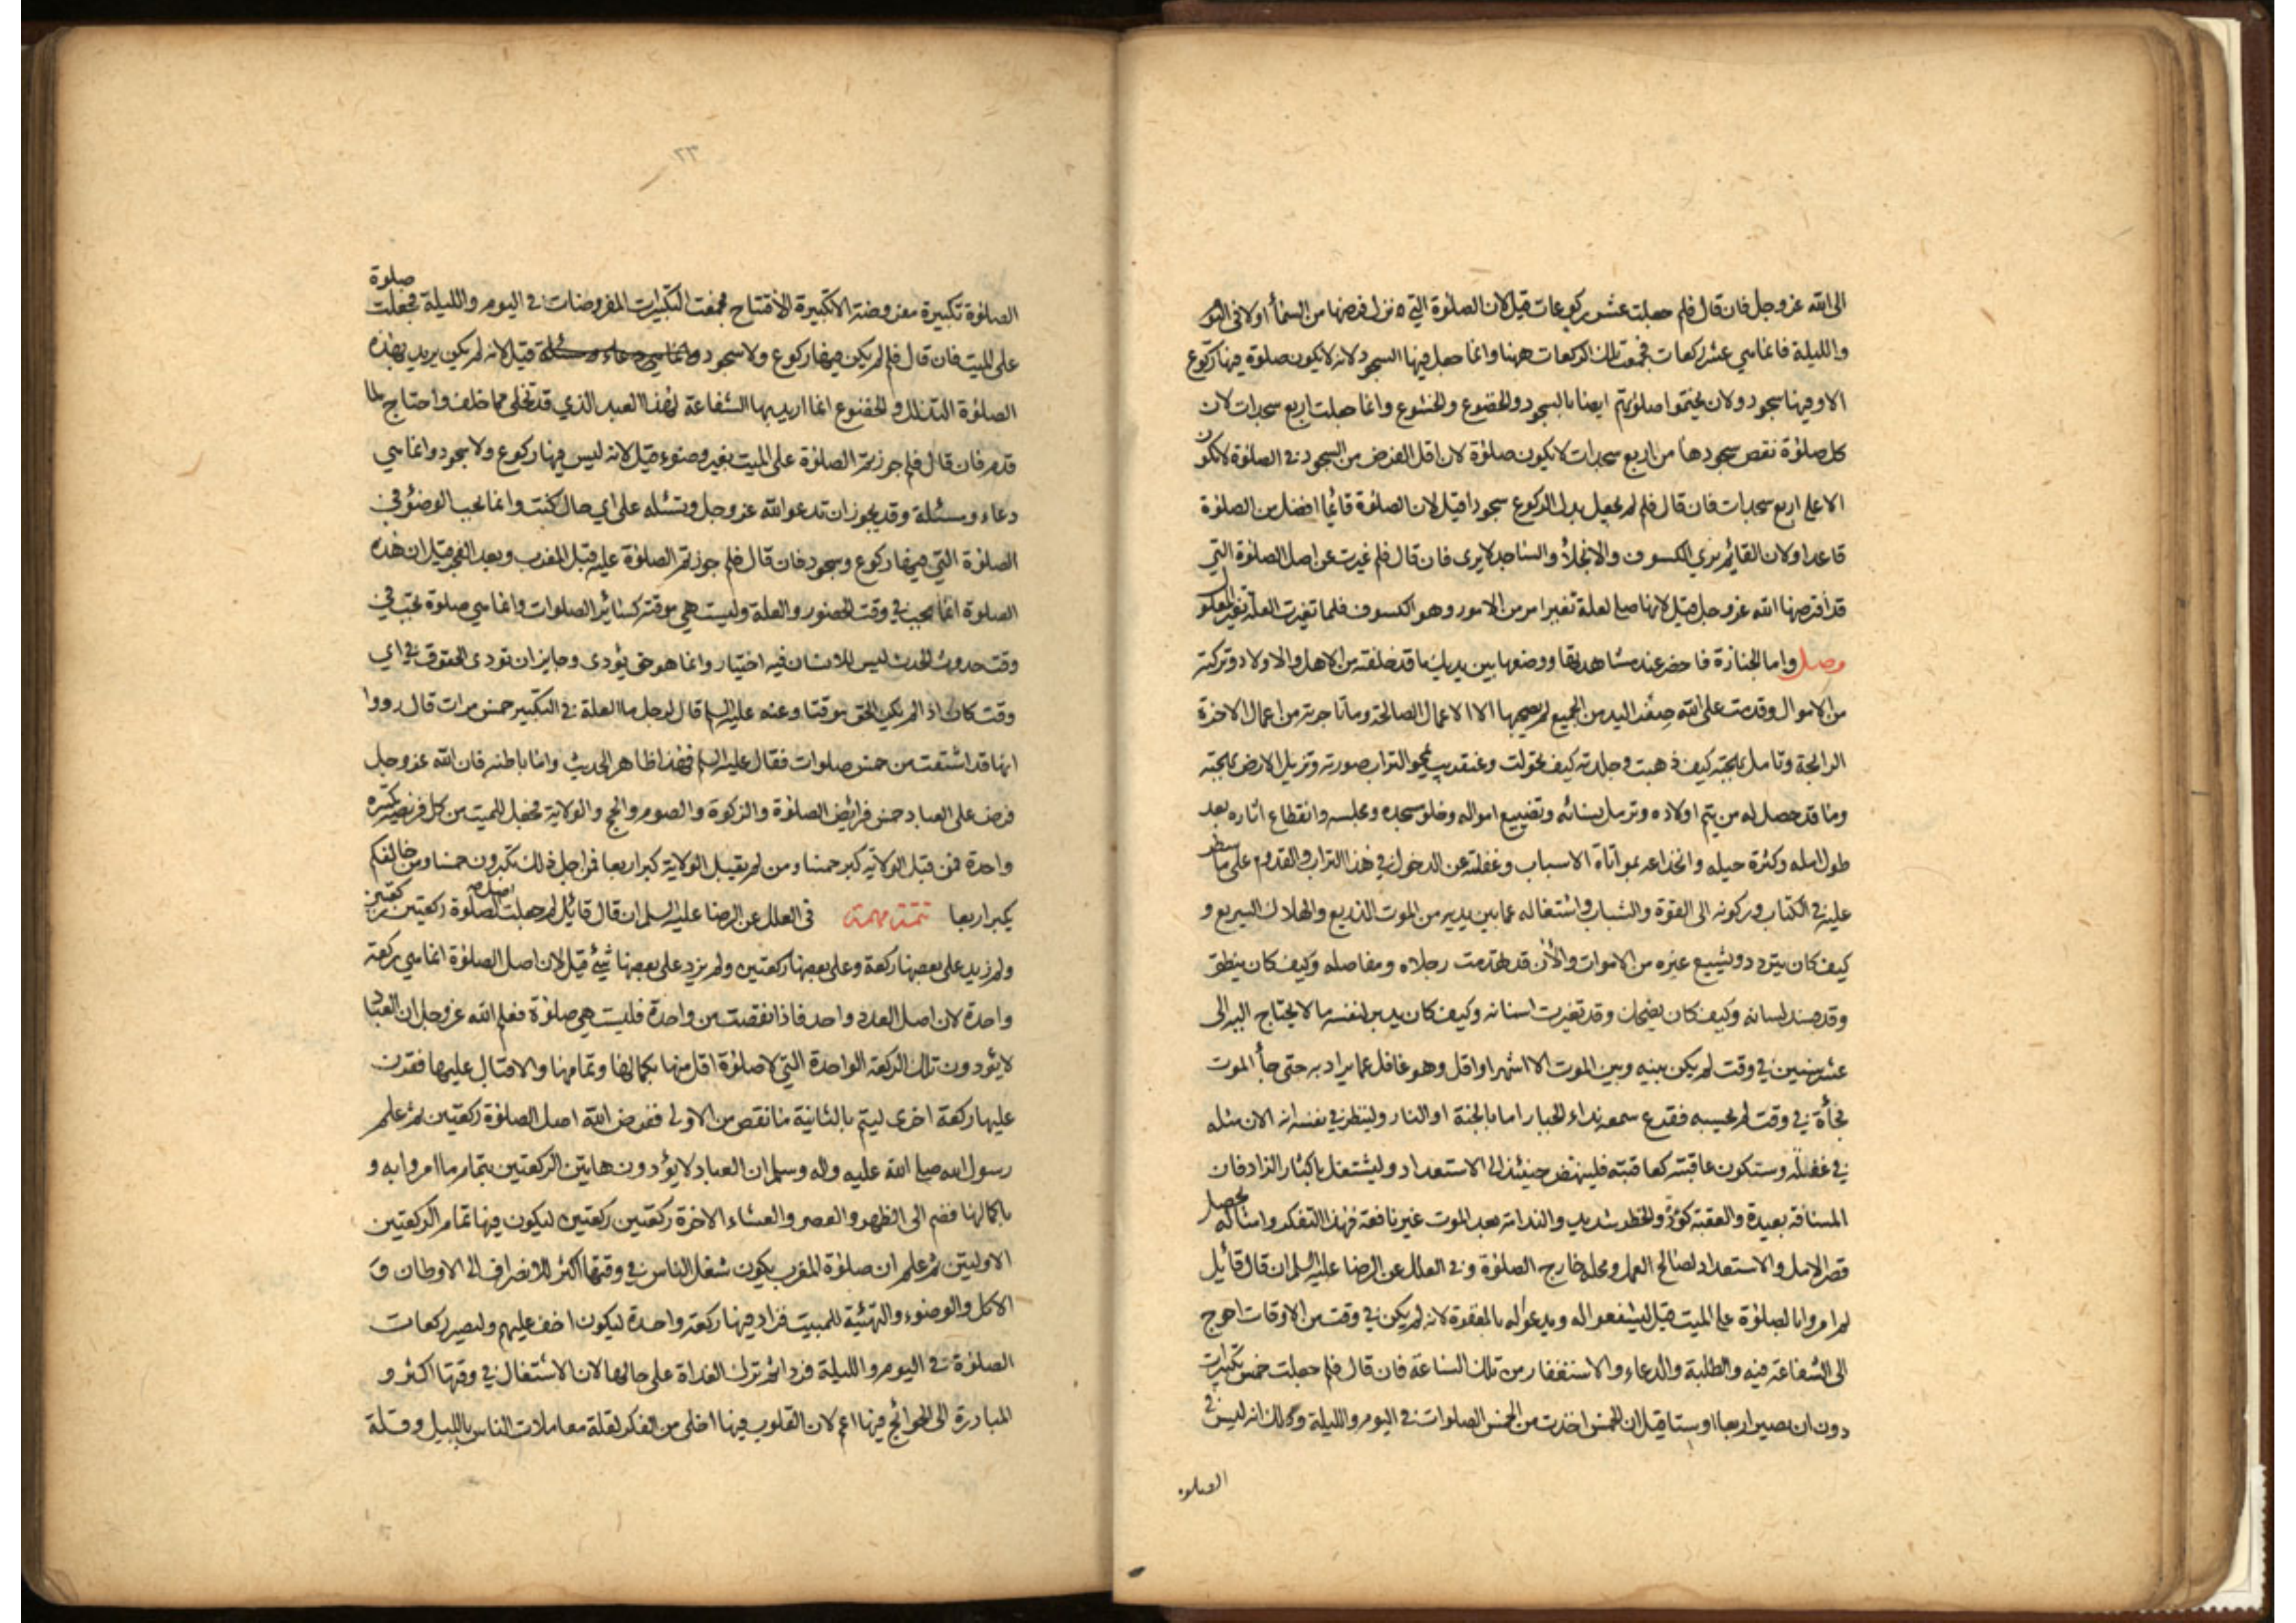 الى الله عز وجل فان قال فلم جعلت عشر ركوعات قيل لان الصلوة التي نزل فرضها من السماء اولا في اليوم
والليلة فانما هي عشر ركعات فجمعت تلك الركعات ههنا وانما جعل فيها السجود لانه لا يكون صلوة فيها ركوع
الا وفيها سجود ولان يختموا صلوتهم ايضا بالسجود والخضوع والخشوع وانما جعلت اربع سجدات لان
كل صلوة نقص سجودها من اربع سجدات لا يكون صلوة لان اقل الفرض من السجود في الصلوة لا يكون
الا على اربع سجدات فان قال فلم لم يجعل بدل الركوع سجودا قيل لان الصلوة قائما افضل من الصلوة
قاعدا ولان القائم يرى الكسوف والانجلاء والساجد لا يرى فان قال فلم غيرت عن اصل الصلوة التي
قد افترضها الله عز وجل قيل لانها صلى لعلة تغير امر من الامور وهو الكسوف فلما تغيرت العلة تغير المعلول
وصل واما الجنازة فاحضر عند مشاهدتها ووضعها بين يديك ما قد خلفته من الاهل والاولاد وتركته
من الاموال وقدمت على الله صفد اليد من الجميع لم يصحبها الا الاعمال الصالحة وما تاجرته من اعمال الاخرة
الرابحة وتامل بهجته كيف ذهبت وجلدته كيف تحولت وعنقريب يمحو التراب صورته وتزيل الارض بهجته
وما قد حصل له من يتم اولاده وترمل نسائه وتضييع امواله وخلو مسجده ومجلسه وانقطاع اثاره بعد
طول امله وكثرة حيله وانخداعه بمواتاة الاسباب وغفلته عن الدخول في هذا التراب والقدوم على ما سطر
عليه في الكتاب وركونه الى القوة والشباب واشتغاله عما بين يديه من الموت الذريع والهلاك السريع و
كيف كان يتردد ويشيع غيره من الاموات والان قد تهدمت رجلاه ومفاصله وكيف كان ينطق
وقد فسد لسانه وكيف كان يضحك وقد تغيرت اسنانه وكيف كان يدبر لنفسه ما لا يحتاج اليه الى
عشر سنين في وقت لم يكن بينه وبين الموت الا شهر او اقل وهو غافل عما يراد به حتى جاء الموت
فجأة في وقت لم يحسبه فقرع سمعه نداء الجبار اما بالجنة او النار ولينظر في نفسه انه الان مثله
في غفلته وستكون عاقبته كعاقبته فلينهض حينئذ الى الاستعداد وليشتغل باكثار الزاد فان
المسافة بعيدة والعقبة كؤد والخطر شديد والندامة بعد الموت غير نافعة فهذا التفكر وامثاله يحصل
قصر الامل والاستعداد لصالح العمل ومحله خارج الصلوة وفي العلل عن الرضا عليه السلم ان قال قائل
لم امروا بالصلوة على الميت قيل ليشفعوا له ويدعوا له بالمغفرة لانه لم يكن في وقت من الاوقات احوج
الى الشفاعة فيه والطلبة والدعاء والاستغفار من تلك الساعة فان قال فلم جعلت خمس تكبيرات
دون ان يصير اربعا او ستا قيل ان الخمس اخذت من الخمس الصلوات في اليوم والليلة وذلك انه ليس في
الصلوة
٢٣
الصلوة تكبيرة مفروضة الا تكبيرة الافتتاح فجمعت التكبيرات المفروضات في اليوم والليلة فجعلت صلوة
على الميت فان قال فلم لم يكن فيها ركوع ولا سجود وانما هي دعاء ومسئلة قيل لانه لم يكن يريد بهذه
الصلوة التذلل والخضوع انما اريد بها الشفاعة لهذا العبد الذي قد تخلى مما خلف واحتاج لما
قدم فان قال فلم جوزتم الصلوة على الميت بغير وضوء قيل لانه ليس فيها ركوع ولا سجود وانما هي
دعاء ومسئلة وقد يجوز ان تدعو الله عز وجل وتسئله على اي حال كنت وانما يجب الوضوء في
الصلوة التي فيها ركوع وسجود فان قال فلم جوزتم الصلوة عليه قبل المغرب وبعد الفجر قيل ان هذه
الصلوة انما تجب في وقت الحضور والعلة وليست هي موقتة كسائر الصلوات وانما هي صلوة تجب في
وقت حدوث الحدث ليس للانسان فيه اختيار وانما هو حق يؤدى وجايز ان تودى الحقوق في اي
وقت كان اذا لم يكن الحق موقتا وعنه عليه السلم قال لرجل ما العلة في التكبير خمس مرات قال رووا
انها قد اشتقت من خمس صلوات فقال عليه السلم فهذا ظاهر الحديث واما باطنه فان الله عز وجل
فرض على العباد خمس فرائض الصلوة والزكوة والصوم والحج والولاية فجعل للميت من كل فريضة تكبيرة
واحدة فمن قبل الولاية كبر خمسا ومن لم يقبل الولاية كبر اربعا فمن اجل ذلك تكبرون خمسا ومن خالفكم
يكبر اربعا تتمة مهمة في العلل عن الرضا عليه السلم ان قال قائل لم جعلت اصل الصلوة ركعتين ركعتين
ولم زيد على بعضها ركعة وعلى بعضها ركعتين ولم يزد على بعضها شئ قيل لان اصل الصلوة انما هي ركعة
واحدة لان اصل العدد واحد فاذا نقصت من واحدة فليست هي صلوة فعلم الله عز وجل ان العباد
لا يؤدون تلك الركعة الواحدة التي لا صلوة اقل منها بكمالها وتمامها والاقبال عليها فقرن
عليها ركعة اخرى ليتم بالثانية ما نقص من الاولى ففرض الله اصل الصلوة ركعتين ثم علم
رسول الله صلى الله عليه واله وسلم ان العباد لا يؤدون هاتين الركعتين بتمام ما امروا به و
باكمالها فضم الى الظهر والعصر والعشاء الاخرة ركعتين ركعتين ليكون فيها تمام الركعتين
الاوليتين ثم علم ان صلوة المغرب يكون شغل الناس في وقتها اكثر للانصراف الى الاوطان و
الاكل والوضوء والتهيئة للمبيت فزاد فيها ركعة واحدة ليكون اخف عليهم ولتصير ركعات
الصلوة في اليوم والليلة فردا ثم ترك الغداة على حالها لان الاشتغال في وقتها اكثر و
المبادرة الى الحوائج فيها اعم لان القلوب فيها اخلى من الفكر لقلة معاملات الناس بالليل وقلة